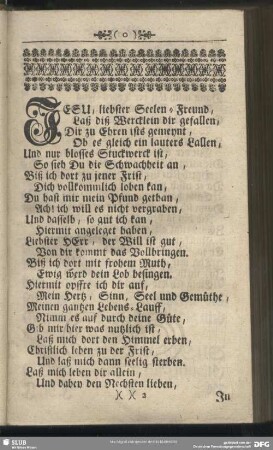 ( o )
JESU, liebster Seelen-Freund,
Laß diß Wercklein dir gefallen,
Dir zu Ehren ists gemeynt,
Ob es gleich ein lauters Lallen,
Und nur blosses Stuckwerck ist,
So sieh Du die Schwachheit an,
Biß ich dort zu jener Frist,
Dich vollkommlich loben kan,
Du hast mir mein Pfund gethan,
Ach! ich will es nicht vergraben,
Und dasselb, so gut ich kan,
Hiermit angeleget haben,
Liebster HErr, der Will ist gut,
Von dir kommt das Vollbringen.
Biß ich dort mit frohem Muth,
Ewig werd dein Lob besingen.
Hiermit opffre ich dir auf,
Mein Hertz, Sinn, Seel und Gemüthe,
Meinen gantzen Lebens-Lauff,
Nimm es auf durch deine Güte,
Gib mir hier was nutzlich ist,
Laß mich dort den Himmel erben,
Christlich leben zu der Frist,
Und laß mich dann seelig sterben.
Laß mich leben dir allein,
Und dabey den Nechsten lieben,
)( )( 2
Zu
SLUB
DFG